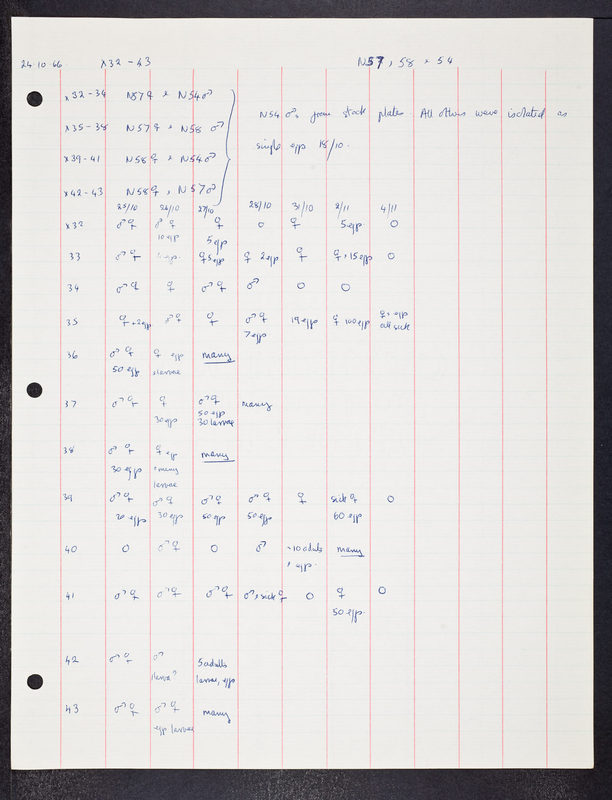 24.10.66. x32-43 N57, 58 × 54
x32-34 N57♀ × N54♂
N54 ♂s from stock plates. All others were isolated as
x35-38 N57♀ × N58 ♂
single eggs 18/10.
x39-41 N58♀ × N54♂
x42-43 N58♀ × N57♂
25/10 26/10 27/10 28/10 31/10 2/11 4/11
x32 ♂♀ ♂♀ ♀ O ♀ 5 egg O
10 egg 5 egg
33 ♂♀ egg ♀ 5 egg ♀ 2 egg ♀ ♀ + 15 egg O
34 ♂♀ ♀ ♂♀ ♂ O O
35 ♀ + 2 egg ♂♀ ♀ ♂♀ 19 egg ♀ 100 egg ♀ + egg
7 egg all sick
36 ♂♀ ♀ egg many
50 egg + larvae
37 ♂♀ ♀ ♂♀ many
30 egg 50 egg
30 larvae
38 ♂♀ ♀ egg many
30 egg + many
larvae
39 ♂♀ ♂♀ ♂♀ ♂♀ ♀ sick ♀ O
20 eggs 30 egg 50 egg 50 egg 60 egg
40 O ♂♀ O ♂ ~10 adults many
+ egg.
41 ♂♀ ♂♀ ♂♀ ♂ + sick ♀ O ♀ O
50 egg.
42 ♂♀ ♂ 5 adults
larva? larvae, egg
43 ♂♀ ♂♀ many
egg larvae